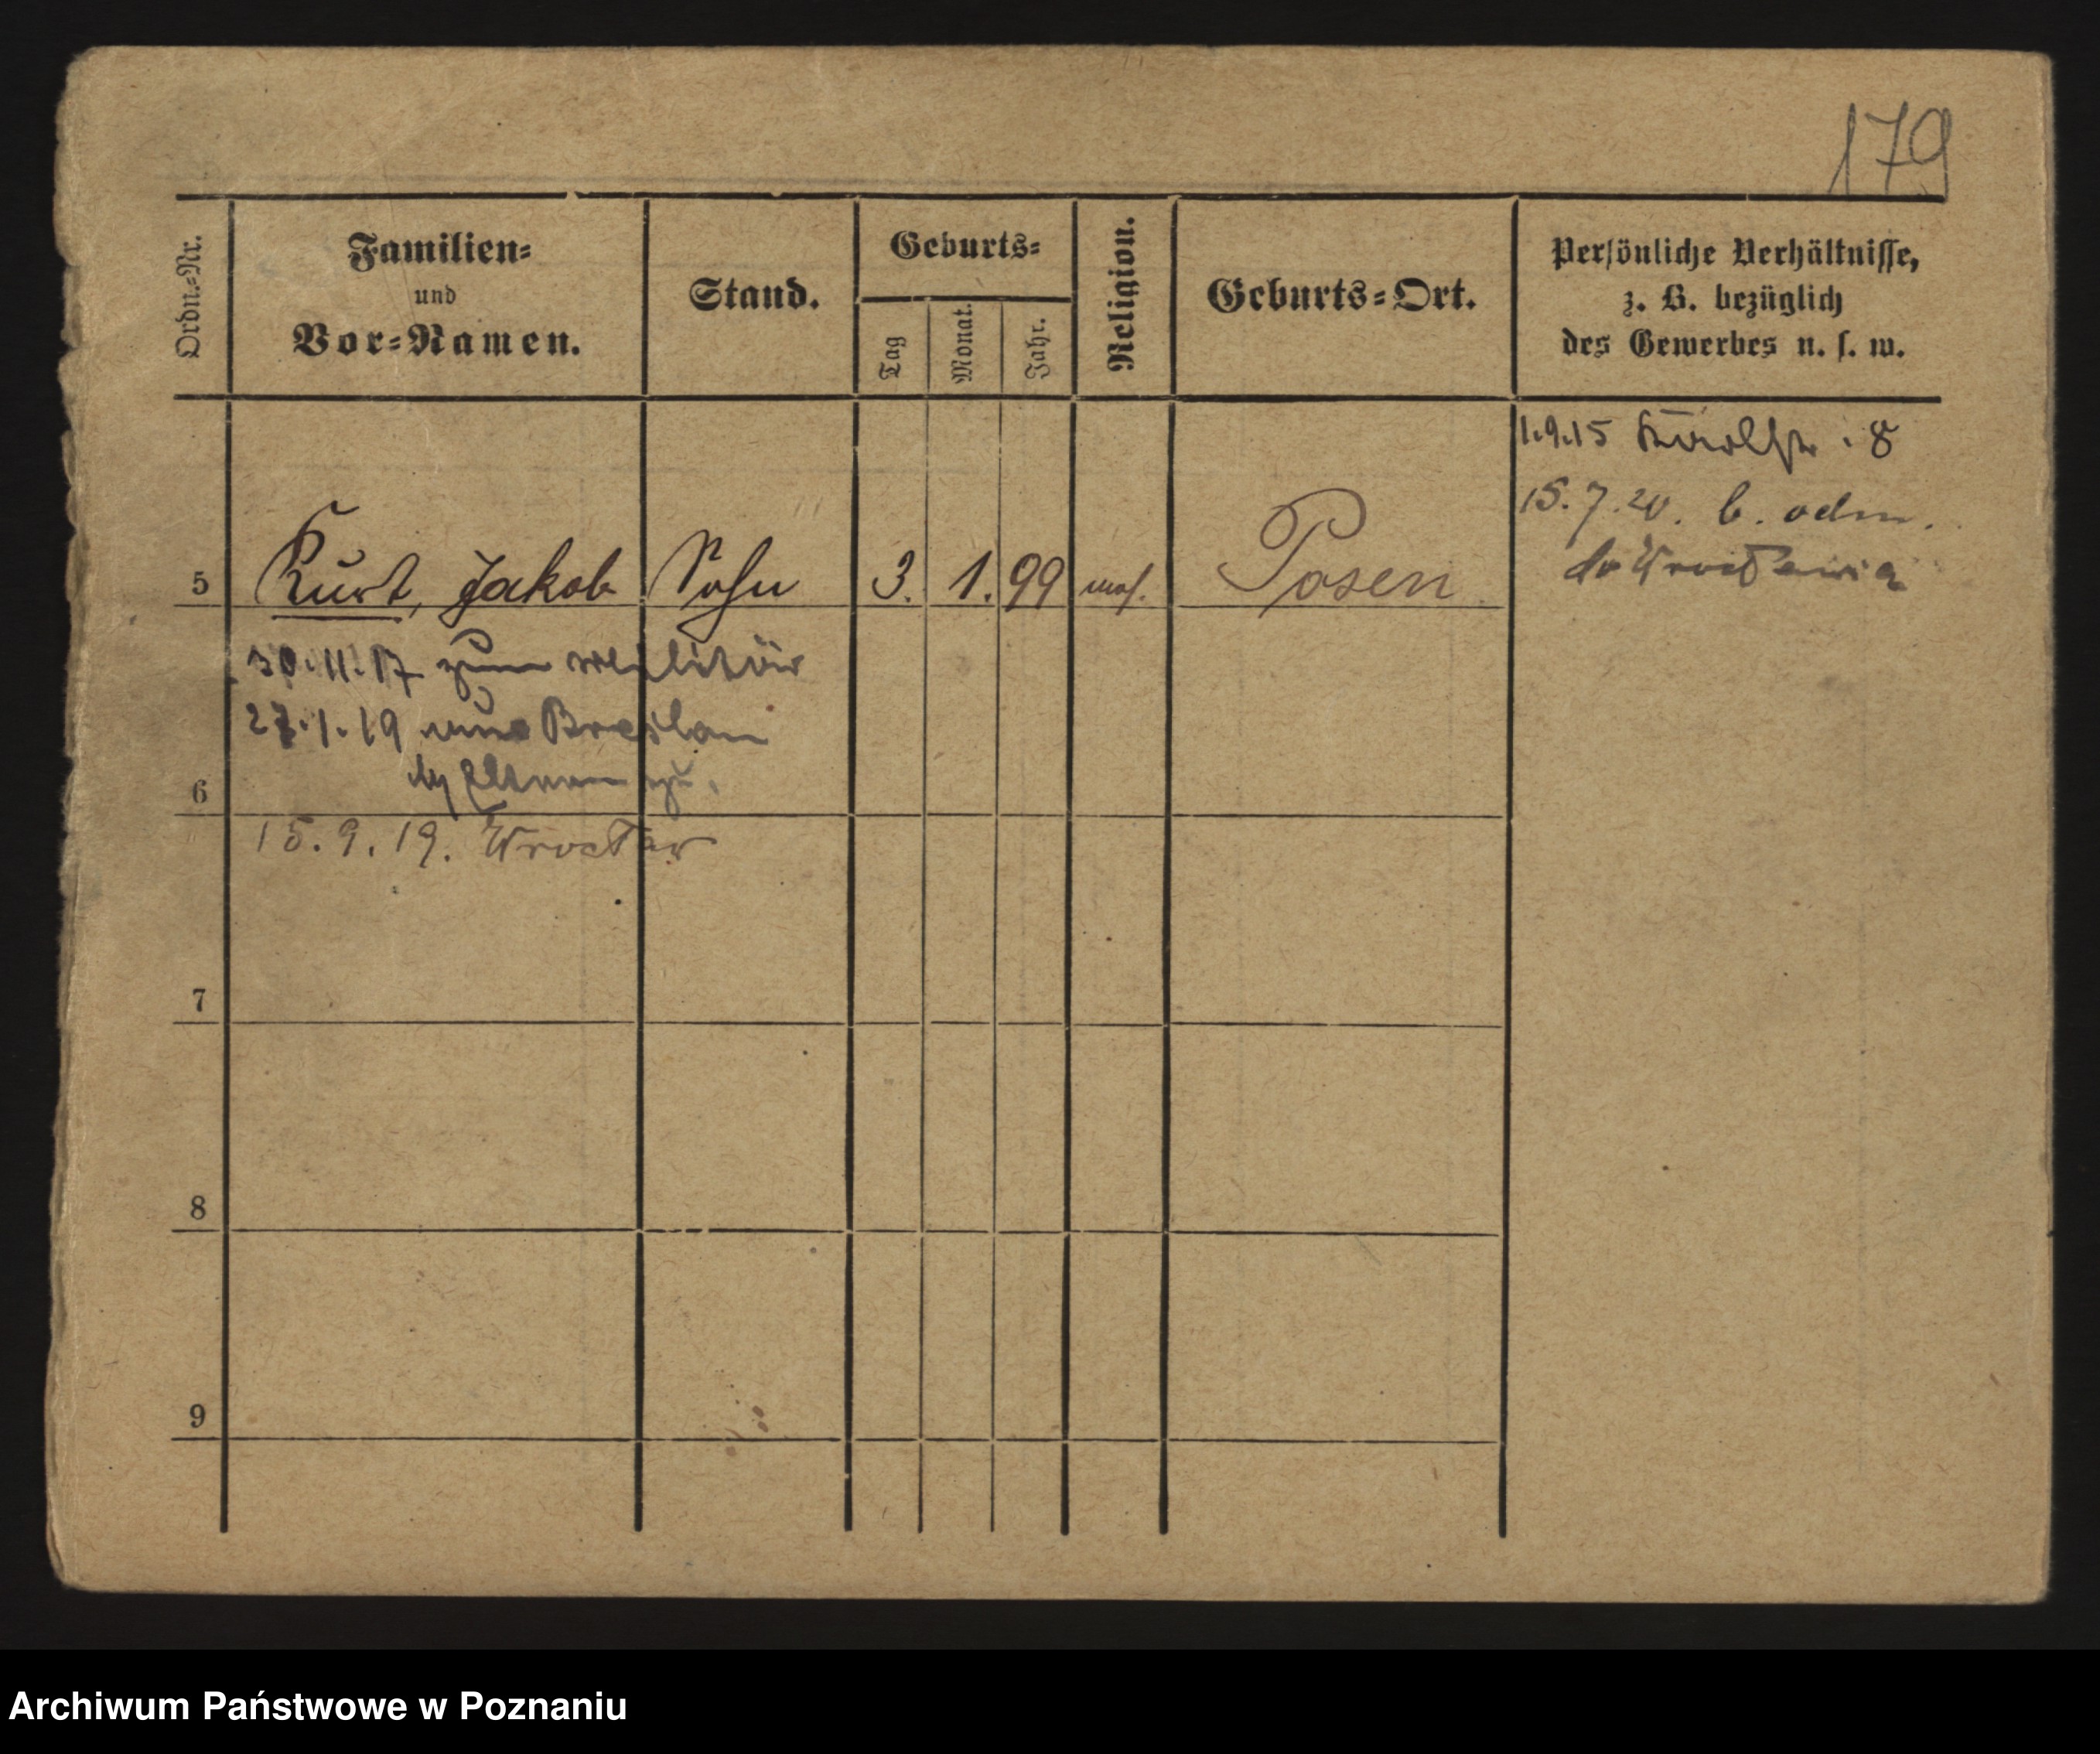 179
Ordn.=Nr.
Familien=
und
Vor=Namen.
Stand.
Geburts=
Tag
Monat.
Jahr.
Religion.
Geburts=Ort.
Persönliche Verhältnisse,
z. B. bezüglich
des Gewerbes u. s. w.
1.9.15 8
15.7.20. b. odm.
do Wrocławia
5 Kurt, Jakob Sohn 3. 1. 99 mos. Posen
30.11.17 zum Militär
27.1.19 Breslau
zu.
6
15.9.19. Wrocław
7
8
9
Archiwum Państwowe w Poznaniu